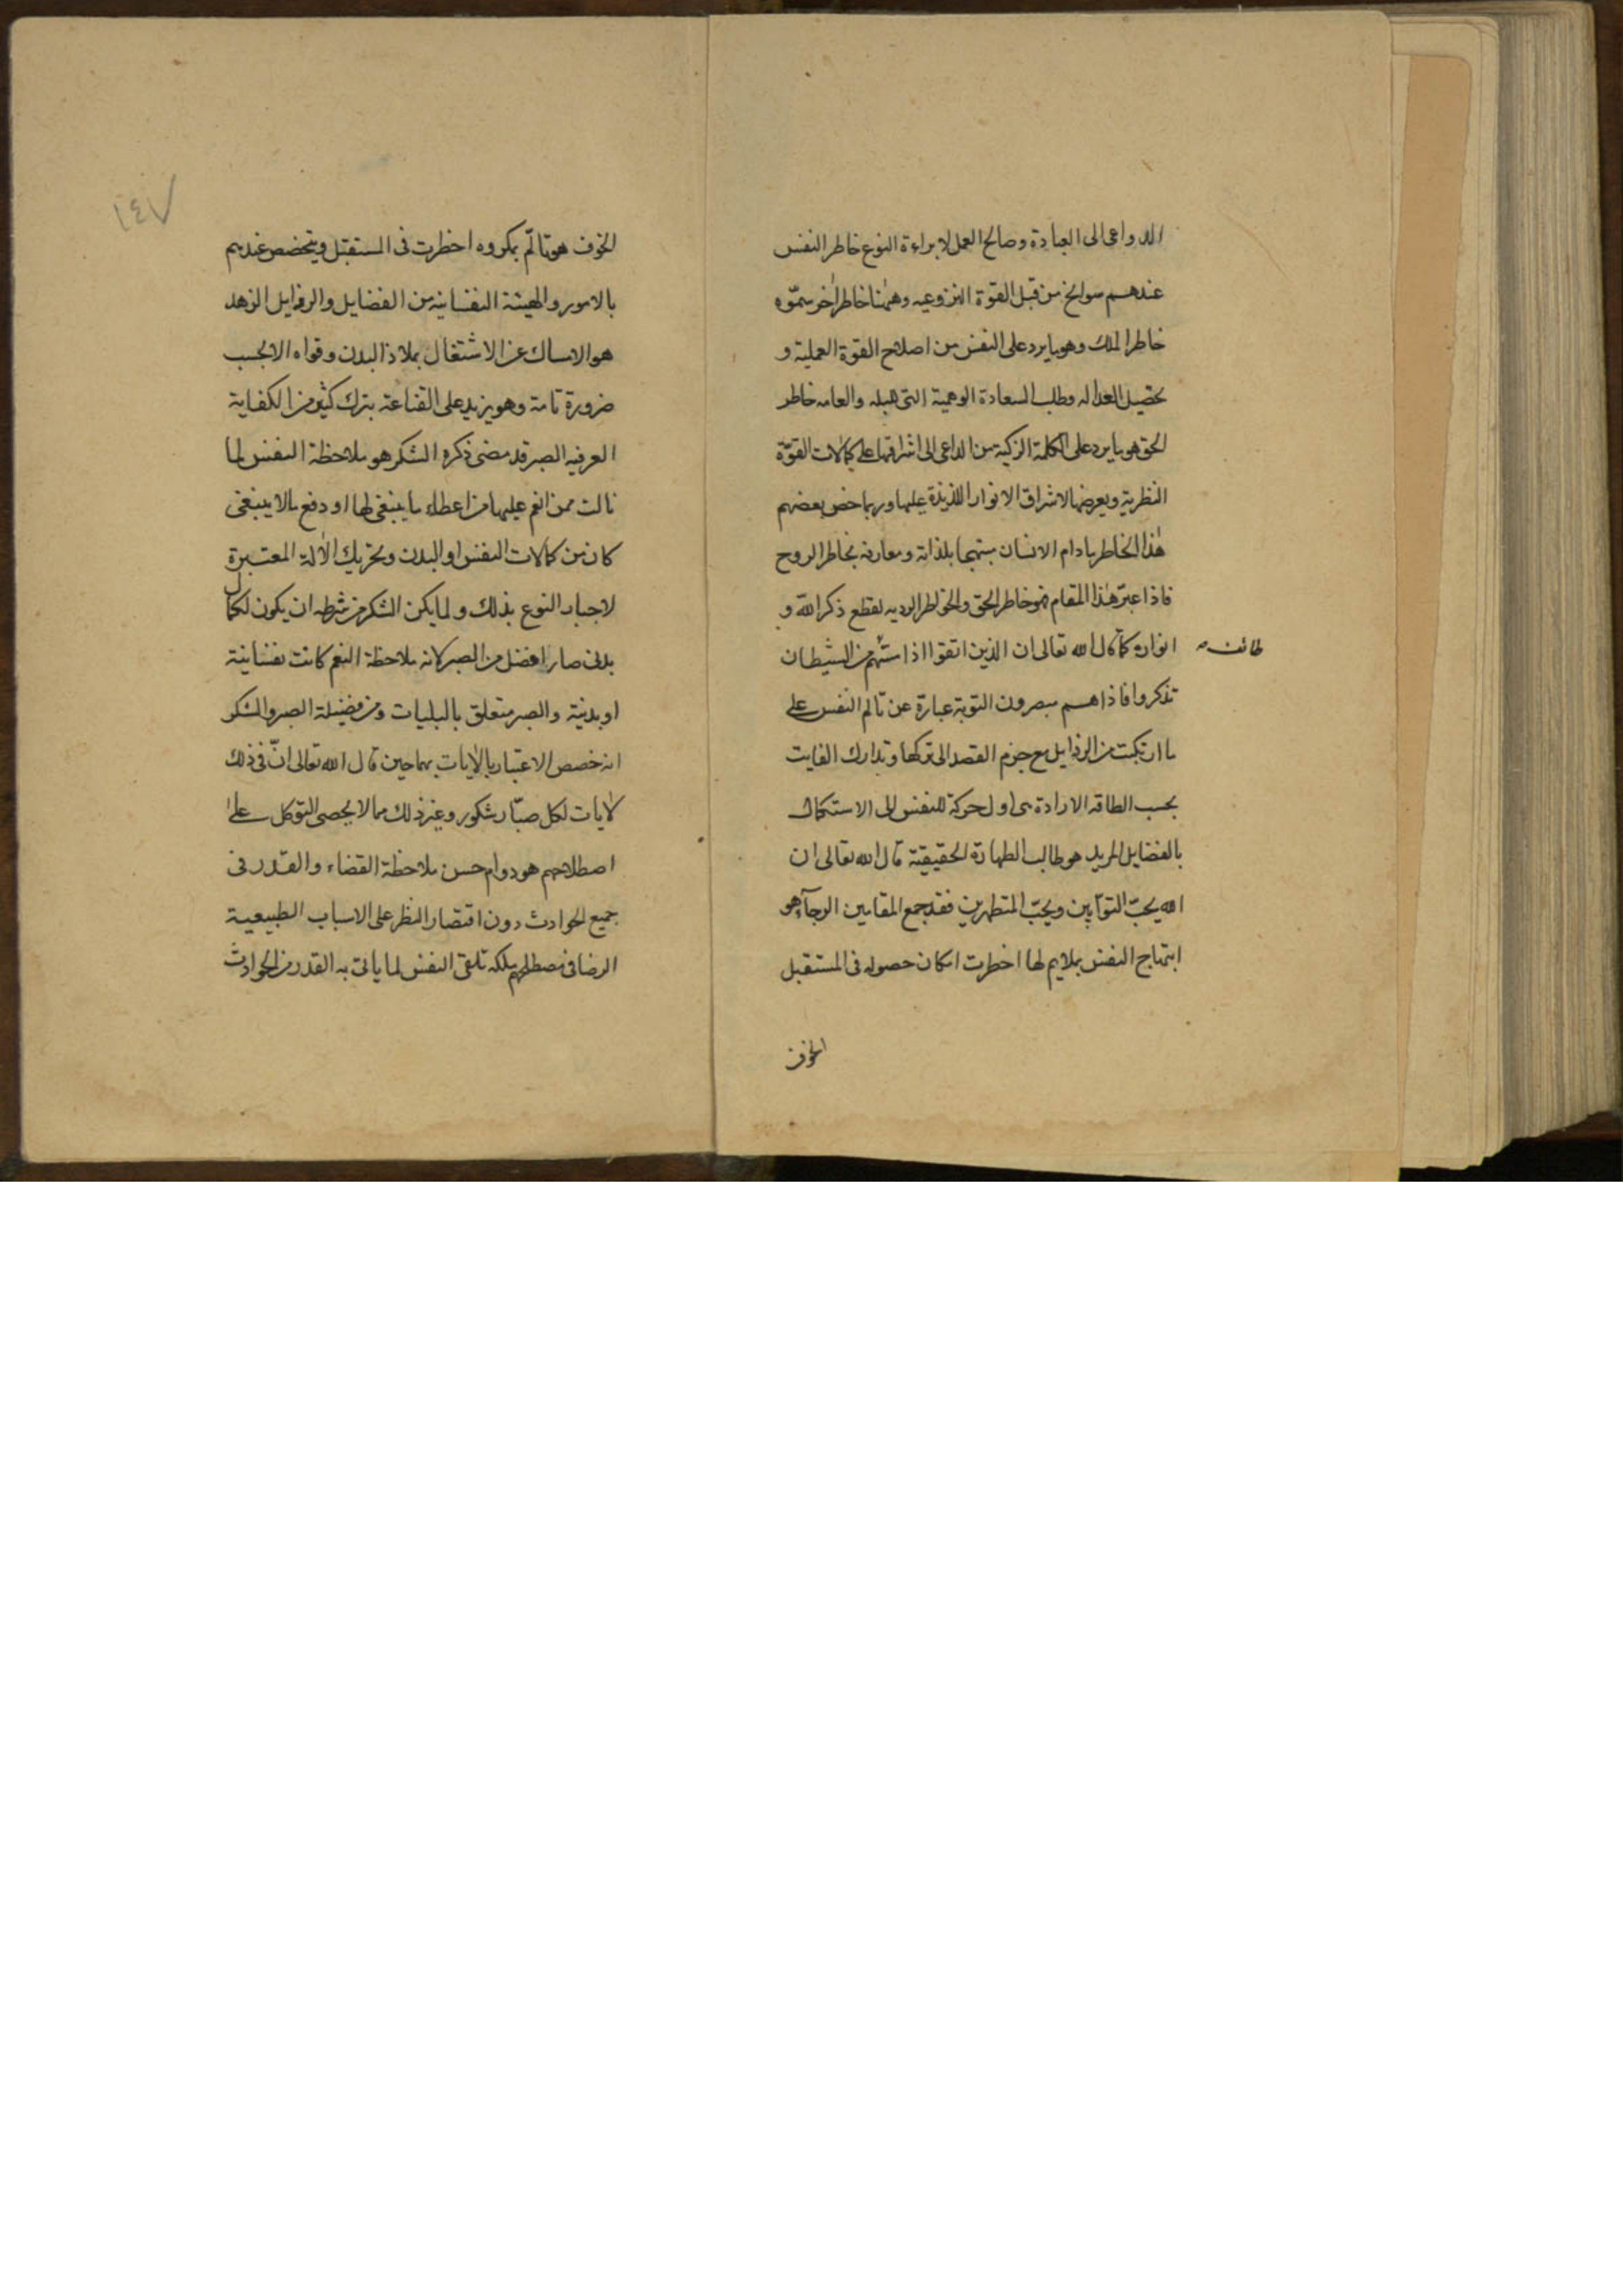 الدواعى الى العبادة وصالح العمل لا براءة النوع خاطر النفس
عندهم سوانح من قبل القوة النزوعيه وههنا خاطر آخر سمّوه
خاطر الملك وهو ما يرد على النفس من اصلاح القوة العملية و
تحصيل العداله وطلب السعادة الوهمية التى والعامه خاطر
الحق هو ما يرد على الكلمة الزكية من الداعى الى اشراقها على كمالات القوّة
النظرية ويعرضها لاشراق الانوار اللذيذة عليها وربما خص بعضهم
هذا الخاطر ما دام الانسان مبتهجا بلذاته ومعارفه بخاطر الروح
فاذا عبر هذا المقام فهو خاطر الحق والخواطر الرديه لقطع ذكر الله و
انواره كما قال الله تعالى ان الذين اتقوا اذا مسّهم من الشيطان
طائف
تذكروا فاذا هم مبصرون التوبة عبارة عن تالم النفس على
ما ارتكبت من الرذايل مع جزم القصد الى تركها وتدارك الفايت
بحسب الطاقه الارادة هى اول حركة للنفس الى الاستكمال
بالفضايل المريد هو طالب الطهارة الحقيقية قال الله تعالى ان
الله يحبّ التوّابين ويحبّ المتطهرين فقد جمع المقامين الرجآء هو
ابتهاج النفس بملايم لها اخطرت امكان حصوله فى المستقبل
الخوف
١٤٧
الخوف هو تالّم بمكروه اخطرت فى المستقبل ويتخصص عندهم
بالامور والهيئة النفسانية من الفضايل والرذايل الزهد
هو الامساك عن الاشتغال بملاذ البدن وقواه الا بحسب
ضرورة تامة وهو يزيد على القناعة بترك كثير من الكفاية
العرفيه الصبر قد مضى ذكره الشكر هو ملاحظة النفس لما
نالت ممن انعم عليها من اعطاء ما ينبغى لها او دفع ما لا ينبغى
كان من كمالات النفس او البدن وتحريك الآلة المعتبرة
لاخبار النوع بذلك ولما يكن الشكر من شرطه ان يكون لكمال
بدنى صار افضل من الصبر لانه ملاحظة النعم كانت نفسانية
او بدنية والصبر متعلق بالبليات ومن فضيلة الصبر والشكر
انه خصص الاعتبار بالآيات بهما حين قال الله تعالى انّ فى ذلك
لآيات لكل صبّار شكور وغير ذلك مما لا يحصى التوكل على
اصطلاحهم هو دوام حسن ملاحظة القضاء والقدر فى
جميع الحوادث دون اقتصار النظر على الاسباب الطبيعية
الرضا فى مصطلحهم ملكه تلقى النفس لما يأتى به القدر من الحوادث